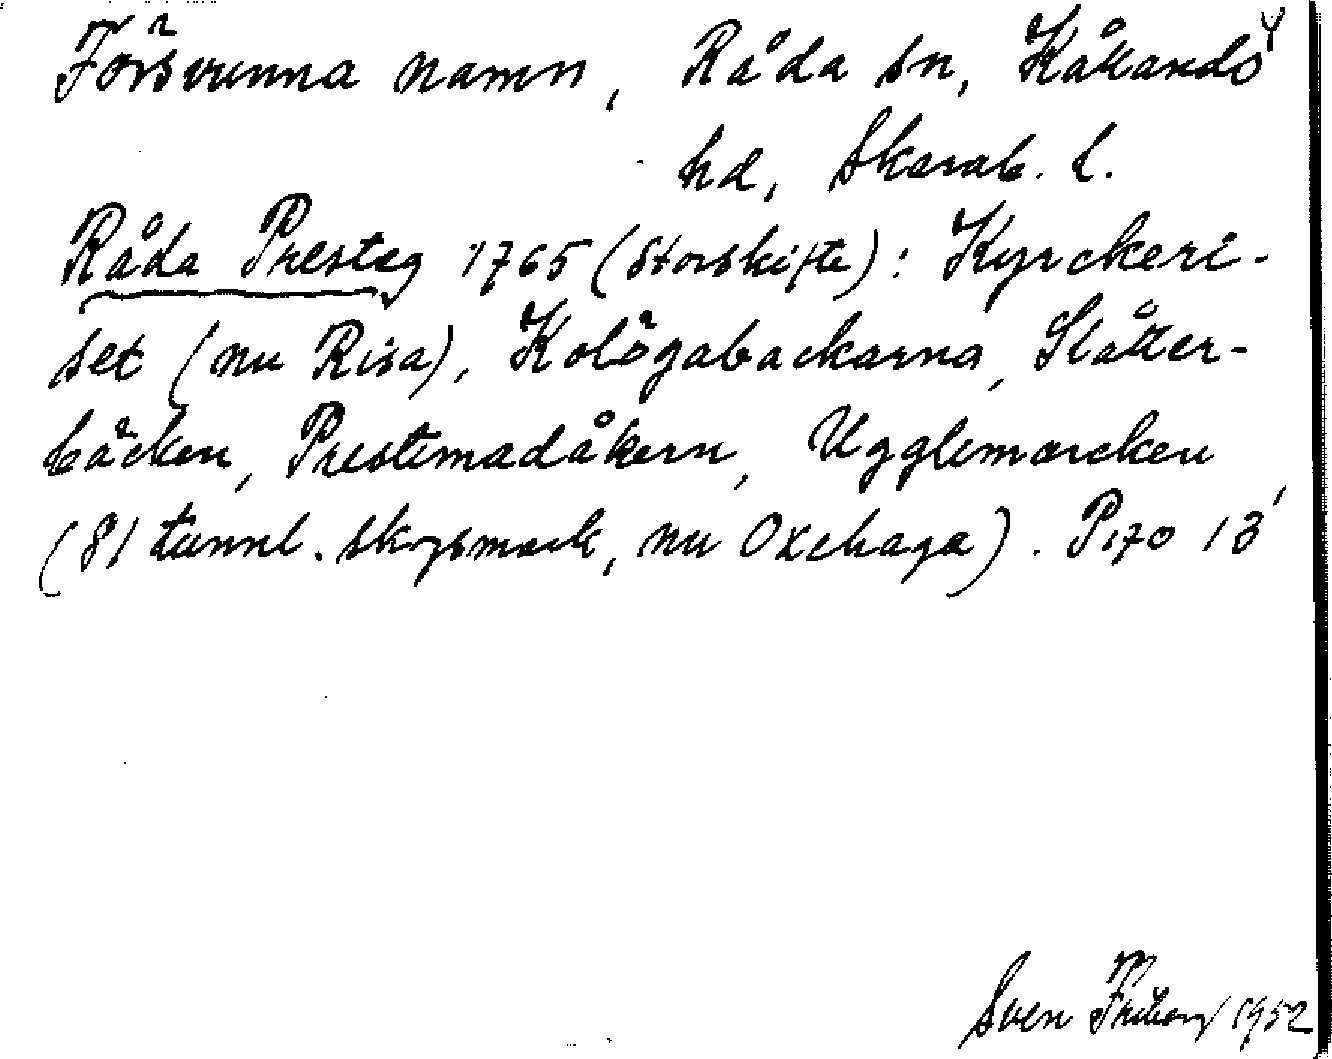 Försvunna namn, Råda sn, Kåkands
hd, Skarab. l.
Råda Presteg 1765 (Storskifte): Kyrckeri-
set (nu Risa), Kolögabackarna, Slåtter-
bäcken, Prestemadåkern, Ugglemarcken
(81 tunnl. skogsmark, nu Oxehaga). P. 170 13
Sven Friberg 1952